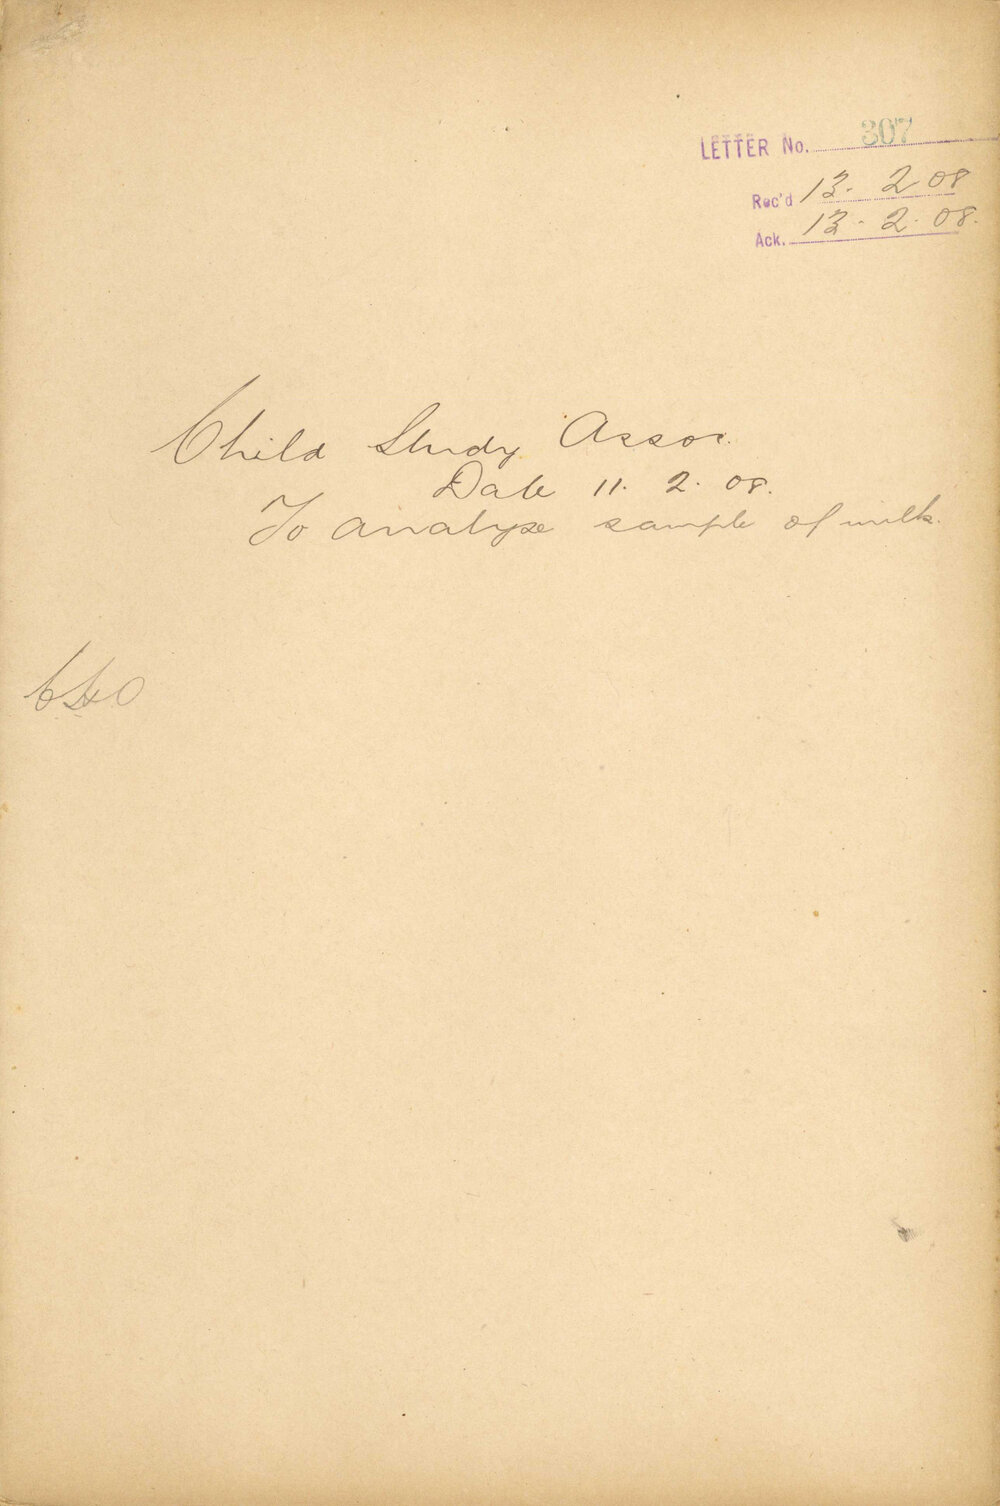 LETTER No. 307
Rec'd 13. 2 08
Ack. 13. 2. 08.
Child Study Assoc.
Date 11. 2. 08.
To analyse sample of milk.